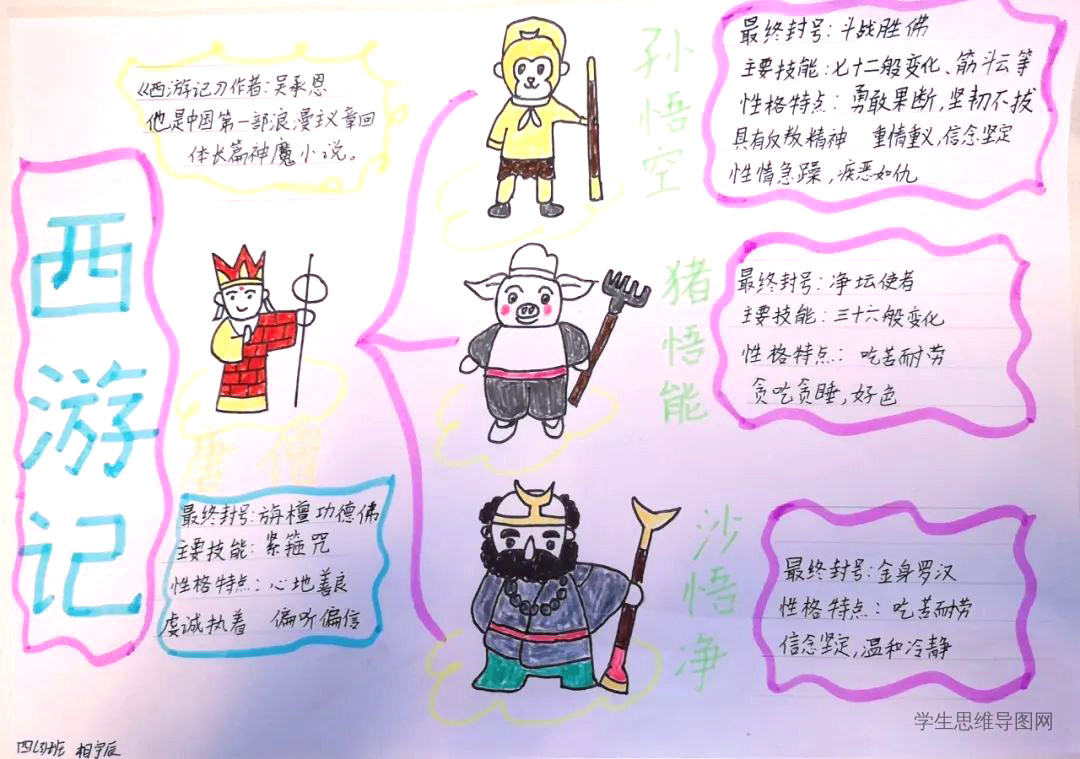 西游记
《西游记》作者:吴承恩
他是中国第一部浪漫主义章回
体长篇神魔小说。
唐僧
最终封号:旃檀功德佛
主要技能:紧箍咒
性格特点:心地善良
虔诚执着 偏听偏信
孙悟空
最终封号:斗战胜佛
主要技能:七十二般变化、筋斗云等
性格特点:勇敢果断,坚韧不拔
具有反叛精神 重情重义,信念坚定
性情急躁,疾恶如仇
猪悟能
最终封号:净坛使者
主要技能:三十六般变化
性格特点:吃苦耐劳
贪吃贪睡,好色
沙悟净
最终封号:金身罗汉
性格特点:吃苦耐劳
信念坚定,温和冷静
学生思维导图网